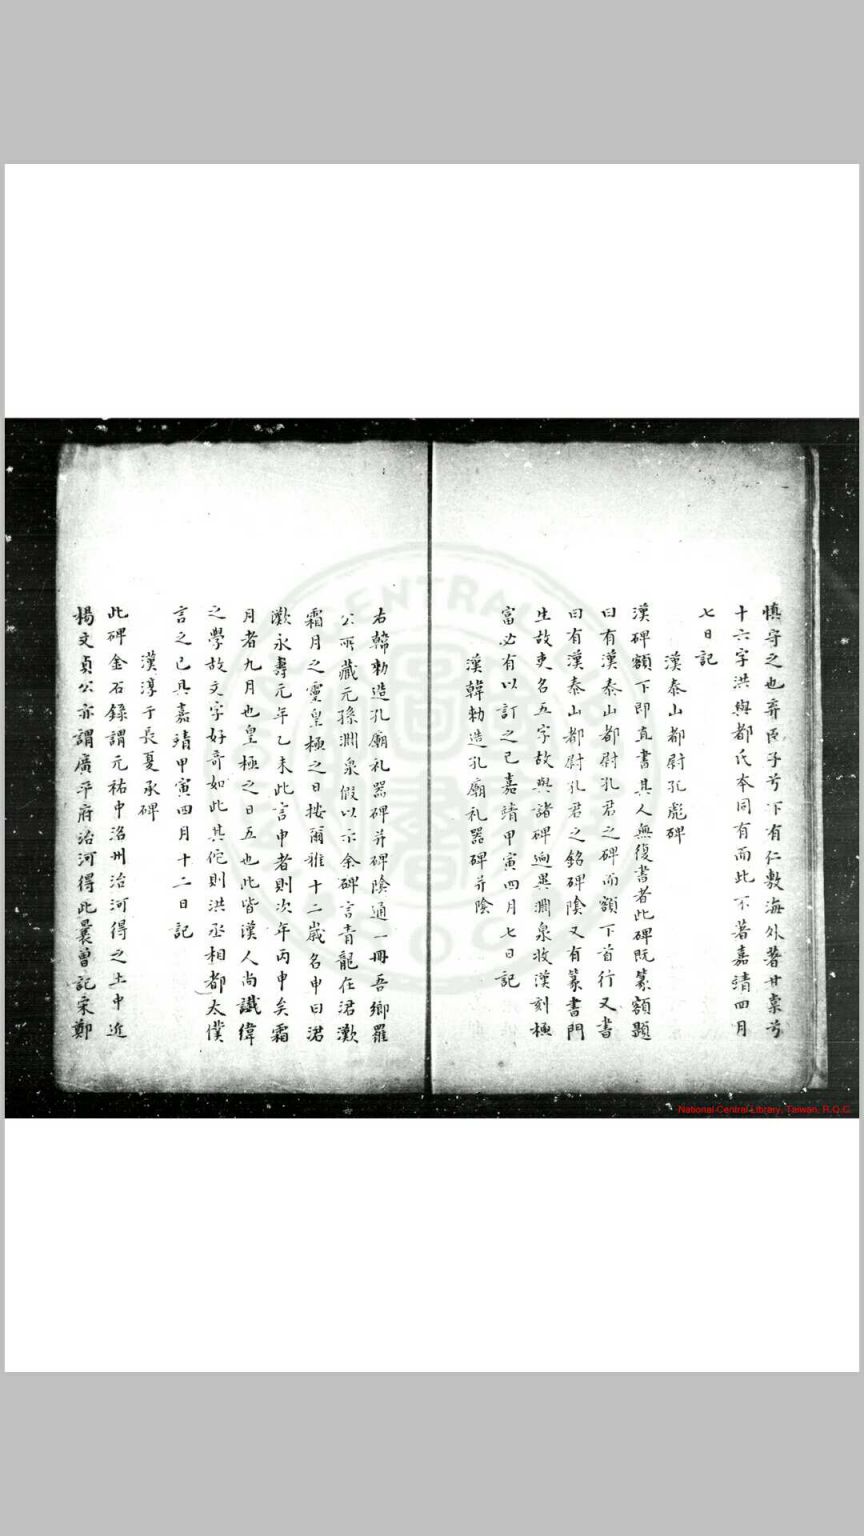 慎守之也弃臣子兮下有仁敷海外著甘棠兮
十六字洪與都氏本同有而此不著嘉靖四月
七日記
漢泰山都尉孔彪碑
漢碑額下即直書其人無復書者此碑既篆額題
曰有漢泰山都尉孔君之碑而額下首行又書
曰有漢泰山都尉孔君之銘碑陰又有篆書門
生故吏名五字故與諸碑逈異淵泉收漢刻極
富必有以訂之已嘉靖甲寅四月七日記
漢韓勑造孔廟礼器碑并陰
右韓勑造孔廟礼器碑并碑陰通一冊吾鄉羅
公所藏元孫淵泉假以示余碑言青龍在涒歎
霜月之靈皇極之日按爾雅十二歲名申曰涒
歎永壽元年乙未此言申者則次年丙申矣霜
月者九月也皇極之日五也此皆漢人尚讖緯
之學故文字好奇如此其佗則洪丞相都太僕
言之已具嘉靖甲寅四月十二日記
漢淳于長夏承碑
此碑金石錄謂元祐中洺州治河得之土中近
楊文貞公亦謂廣平府治河得此曩曾記宋鄭
National Central Library, Taiwan, R.O.C